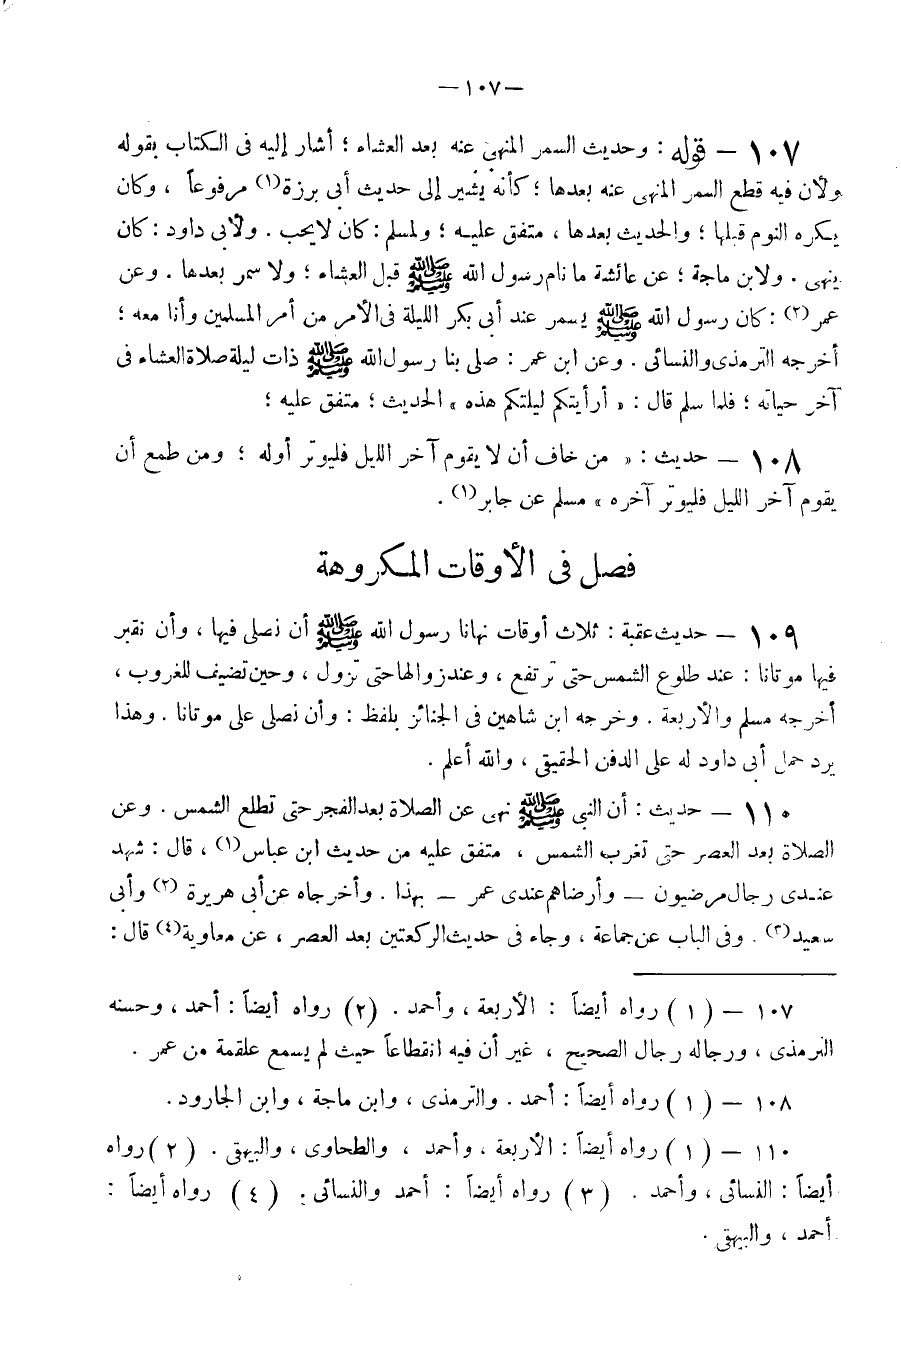 — ١٠٧ —
١٠٧ — قوله : وحديث السمر المنهى عنه بعد العشاء ؛ أشار إليه فى الكتاب بقوله
ولأن فيه قطع السمر المنهى عنه بعدها ؛ كأنه يشير إلى حديث أبى برزة (١) مرفوعاً ، وكان
يكره النوم قبلها ؛ والحديث بعدها ، متفق عليه ؛ ولمسلم : كان لايحب . ولأبى داود : كان
ينهى . ولابن ماجة ؛ عن عائشة ما نام رسول الله ﷺ قبل العشاء ؛ ولا سمر بعدها . وعن
عمر (٢) : كان رسول الله ﷺ يسمر عند أبى بكر الليلة فى الأمر من أمر المسلمين وأنا معه ؛
أخرجه الترمذى والنسائى . وعن ابن عمر : صلى بنا رسول الله ﷺ ذات ليلة صلاة العشاء فى
آخر حياته ؛ فلما سلم قال : « أرأيتكم ليلتكم هذه » الحديث ؛ متفق عليه ؛
١٠٨ — حديث : « من خاف أن لا يقوم آخر الليل فليوتر أوله ؛ ومن طمع أن
يقوم آخر الليل فليوتر آخره » مسلم عن جابر (١) .
فصل فى الأوقات المكروهة
١٠٩ — حديث عقبة : ثلاث أوقات نهانا رسول الله ﷺ أن نصلى فيها ، وأن نقبر
فيها موتانا : عند طلوع الشمس حتى ترتفع ، وعند زوالها حتى تزول ، وحين تضيف للغروب ،
أخرجه مسلم والأربعة . وخرجه ابن شاهين فى الجنائز بلفظ : وأن نصلى على موتانا . وهذا
يرد حمل أبى داود له على الدفن الحقيقى ، والله أعلم .
١١٠ — حديث : أن النبى ﷺ نهى عن الصلاة بعد الفجر حتى تطلع الشمس . وعن
الصلاة بعد العصر حتى تغرب الشمس ، متفق عليه من حديث ابن عباس (١) ، قال : شهد
عندى رجال مرضيون — وأرضاهم عندى عمر — بهذا . وأخرجاه عن أبى هريرة (٢) وأبى
سعيد (٣) . وفى الباب عن جماعة ، وجاء فى حديث الركعتين بعد العصر ، عن معاوية (٤) قال :
١٠٧ — ( ١ ) رواه أيضاً : الأربعة ، وأحمد . (٢) رواه أيضاً : أحمد ، وحسنه
الترمذى ، ورجاله رجال الصحيح ، غير أن فيه انقطاعاً حيث لم يسمع علقمة من عمر .
١٠٨ — ( ١ ) رواه أيضاً : أحمد . والترمذى ، وابن ماجة ، وابن الجارود .
١١٠ — ( ١ ) رواه أيضاً : الأربعة ، وأحمد ، والطحاوى ، والبيهقى . ( ٢ ) رواه
أيضاً : النسائى ، وأحمد . ( ٣ ) رواه أيضاً : أحمد والنسائى . ( ٤ ) رواه أيضاً :
أحمد ، والبيهقى .